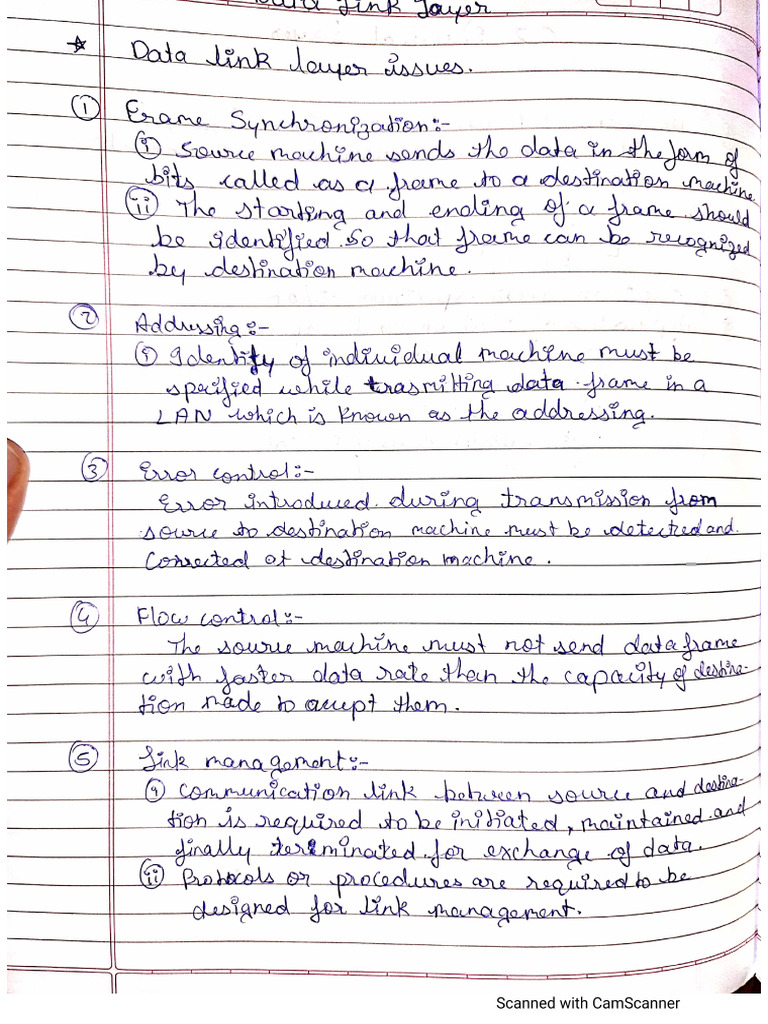 Data Link Layer
☆ Data link layer issues.
① Frame Synchronization:-
ⓘ Source machine sends the data in the form of
bits called as a frame to a destination machine
ⓘⓘ The starting and ending of a frame should
be identified. So that frame can be recognized
by destination machine.
② Addressing:-
ⓘ Identity of individual machine must be
specified while trasmitting data frame in a
LAN which is known as the addressing.
③ Error control:-
Error introduced during transmission from
source to destination machine must be detected and
Corrected at destination machine.
④ Flow control:-
The source machine must not send data frame
with faster data rate than the capacity of destina-
tion made to accept them.
⑤ Link management:-
ⓘ Communication link between source and destina-
tion is required to be initiated, maintained and
finally terminated for exchange of data.
ⓘⓘ Protocols or procedures are required to be
designed for link management.
Scanned with CamScanner